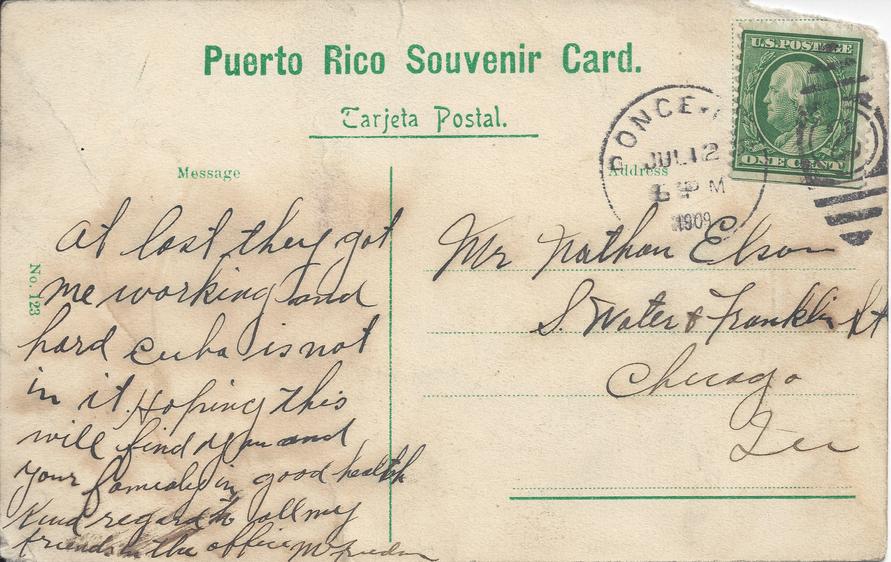 Puerto Rico Souvenir Card.
Tarjeta Postal.
U.S. POSTAGE
ONE CENT
PONCE
JUL 12
PM
1909
Message
Address
No. 123
At last they got
me working and
hard Cuba is not
in it. Hoping this
will find you and
your in good health
Kind regard to all my
friends in the office
Mr Nathan Elson
S. Water & Franklin St
Chicago
Ill